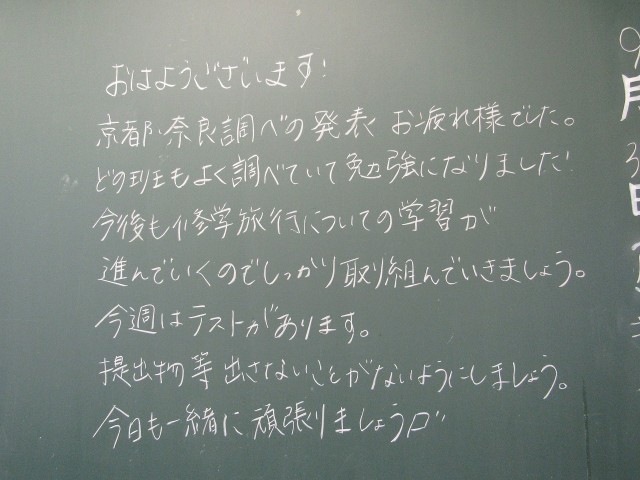 おはようございます!
京都・奈良調べの発表 お疲れ様でした。
どの班もよく調べていて勉強になりました!
今後も修学旅行についての学習が
進んでいくのでしっかり取り組んでいきましょう。
今週はテストがあります。
提出物等出さないことがないようにしましょう。
今日も一緒に頑張りましょう
9
月
3
日